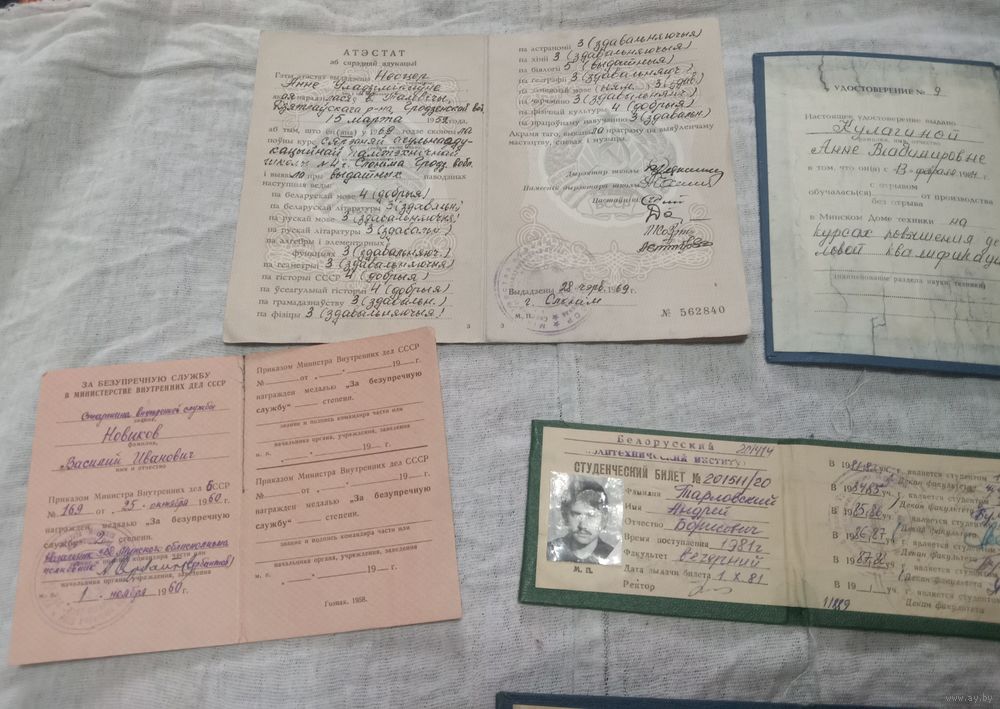 АТЭСТАТ
аб сярэдняй адукацыі
Гэты атэстат выдадзены
Анне Уладзіміраўне
15 марта 1952 года.
аб тым, што ён (яна) у 1969 годзе скончыла
поўны курс сярэдняй агульнааду-
кацыйнай політэхнічнай
школы №4 г. Слоніма Гродз. вобл.
і выявіла пры выдатных паводзінах
наступныя веды:
па беларускай мове 4 (добрыя)
па беларускай літаратуры 3 (здавальн)
па рускай мове 3 (здавальняючыя)
па рускай літаратуры 3 (здавальн.)
па алгебры і элементарных
функцыях 3 (здавальняюч.)
па геаметрыі 3 (здавальняючыя)
па гісторыі СССР 4 (добрыя)
па ўсеагульнай гісторыі 4 (добрыя)
па грамадазнаўству 3 (здавальн.)
па фізіцы 3 (здавальняючыя)
М. П.
па астраноміі 3 (здавальняючыя)
па хіміі 3 (здавальняючыя)
па біялогіі 5 (выдатныя)
па геаграфіі 3 (здавальняюч.)
па мове 3 (здав)
па чарчэнню 3 (здавальняючыя)
па фізічнай культуры 4 (добрыя)
па працоўнаму навучанню 3 (здавальн)
Акрамя таго, выканала праграму па выяўленчаму
мастацтву, спевах і музыцы.
Дырэктар школы
Намеснік дырэктара школы
Настаўнікі
Выдадзены 28 чэрв. 1969 г.
г. Слонім
М. П.
№ 562840
УДОСТОВЕРЕНИЕ № 9
Настоящее удостоверение выдано
Кулагиной
Анне Владимировне
в том, что он(а) с 13 февраля
с отрывом
обучалась(ся) от производства
без отрыва
в Минском Доме техники на
курсах повышения де-
ловой квалификации
(наименование раздела науки, техники)
ЗА БЕЗУПРЕЧНУЮ СЛУЖБУ
В МИНИСТЕРСТВЕ ВНУТРЕННИХ ДЕЛ СССР
Старшина внутренней службы
звание,
Новиков
фамилия,
Василий Иванович
имя и отчество
Приказом Министра Внутренних дел БССР
№ 169 от „25" октября 1960 г.
награжден медалью „За безупречную
службу" 2 степени.
звание и подпись командира части или
начальника органа, учреждения, заведения
м. п. „1" ноября 1960 г.
Приказом Министра Внутренних дел СССР
№ от „ " 19 г.
награжден медалью „За безупречную
службу" степени.
звание и подпись командира части или
начальника органа, учреждения, заведения
м. п. „ " 19 г.
Приказом Министра Внутренних дел СССР
№ от „ " 19 г.
награжден медалью „За безупречную
службу" степени.
звание и подпись командира части или
начальника органа, учреждения, заведения
м. п. „ " 19 г.
Гознак. 1958.
Белорусский 201414
ПОЛИТЕХНИЧЕСКИЙ ИНСТИТУТ
СТУДЕНЧЕСКИЙ БИЛЕТ № 201511/20
Фамилия Тарловский
Имя Андрей
Отчество Борисович
Время поступления 1981 г.
Факультет вечерний
Дата выдачи билета 1.X.81
Ректор
М. П.
В 1981-82 уч. г. является студентом
Декан факультета
В 1984/85 уч. г. является студентом
Декан факультета
В 1985-86 уч. г. является студентом
Декан факультета
В 1986-87 уч. г. является студентом
Декан факультета
В 1987-88 уч. г. является студентом
Декан факультета
В 19 / уч. г. является студентом
Декан факультета
www.ay.by